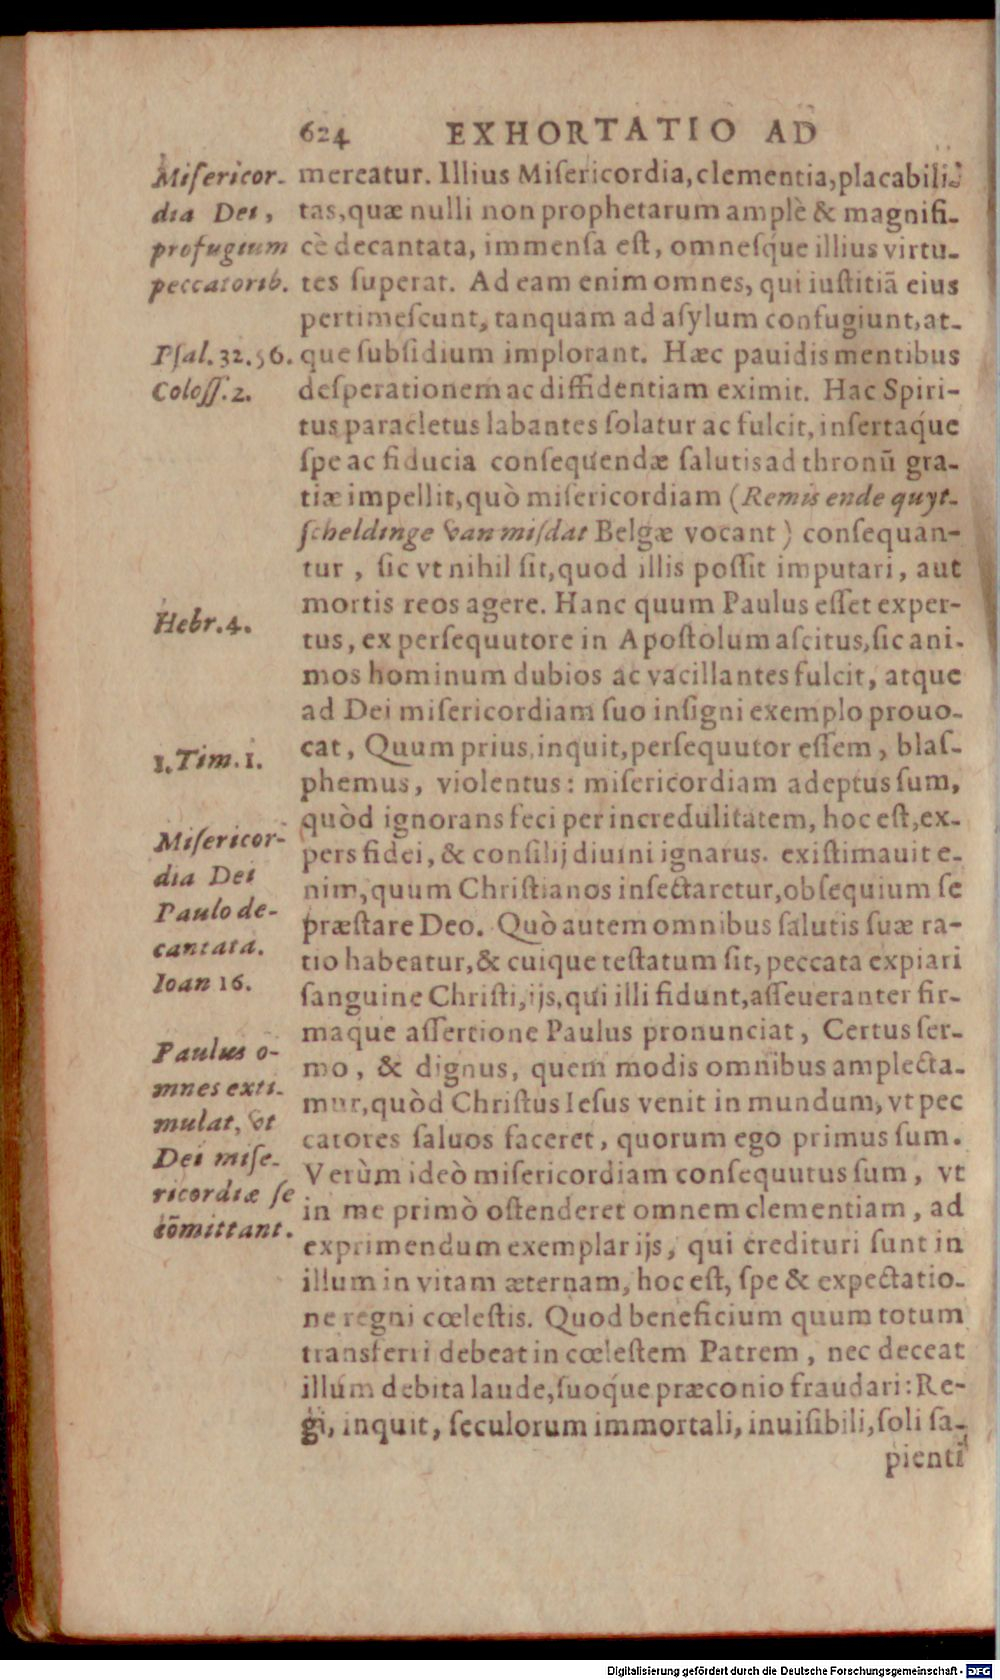 624 EXHORTATIO AD
Miſericor-
dia Dei,
profugium
peccatorib.
Pſal. 32. 56.
Coloſſ. 2.
Hebr. 4.
1. Tim. 1.
Miſericor-
dia Dei
Paulo de-
cantata.
Ioan 16.
Paulus o-
mnes exti-
mulat, vt
Dei miſe-
ricordiæ ſe
cōmittant.
mereatur. Illius Miſericordia, clementia, placabili-
tas, quæ nulli non prophetarum amplè & magnifi-
cè decantata, immenſa eſt, omneſq́ue illius virtu-
tes ſuperat. Ad eam enim omnes, qui iuſtitiā eius
pertimeſcunt, tanquam ad aſylum confugiunt, at-
que ſubſidium implorant. Hæc pauidis mentibus
deſperationem ac diffidentiam eximit. Hac Spiri-
tus paracletus labantes ſolatur ac fulcit, inſertaq́ue
ſpe ac fiducia conſequendæ ſalutis ad thronū gra-
tiæ impellit, quò miſericordiam (Remis ende quyt-
ſcheldinge van miſdat Belgæ vocant) conſequan-
tur, ſic vt nihil ſit, quod illis poſſit imputari, aut
mortis reos agere. Hanc quum Paulus eſſet exper-
tus, ex perſequutore in Apoſtolum aſcitus, ſic ani-
mos hominum dubios ac vacillantes fulcit, atque
ad Dei miſericordiam ſuo inſigni exemplo prouo-
cat, Quum prius, inquit, perſequutor eſſem, blaſ-
phemus, violentus: miſericordiam adeptus ſum,
quòd ignorans feci per incredulitatem, hoc eſt, ex-
pers fidei, & conſilij diuini ignarus. exiſtimauit e-
nim, quum Chriſtianos inſectaretur, obſequium ſe
præſtare Deo. Quò autem omnibus ſalutis ſuæ ra-
tio habeatur, & cuique teſtatum ſit, peccata expiari
ſanguine Chriſti, ijs, qui illi fidunt, aſſeueranter fir-
maque aſſertione Paulus pronunciat, Certus ſer-
mo, & dignus, quem modis omnibus amplecta-
mur, quòd Chriſtus Ieſus venit in mundum, vt pec
catores ſaluos faceret, quorum ego primus ſum.
Verùm ideò miſericordiam conſequutus ſum, vt
in me primò oſtenderet omnem clementiam, ad
exprimendum exemplar ijs, qui credituri ſunt in
illum in vitam æternam, hoc eſt, ſpe & expectatio-
ne regni cœleſtis. Quod beneficium quum totum
transferri debeat in cœleſtem Patrem, nec deceat
illum debita laude, ſuoq́ue præconio fraudari: Re-
gi, inquit, ſeculorum immortali, inuiſibili, ſoli ſa-
pienti
Digitalisierung gefördert durch die Deutsche Forschungsgemeinschaft - DFG